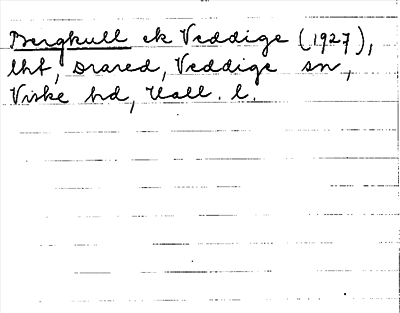 Bergkull ek Veddige (1927),
lht, Srared, Veddige sn,
Viske hd, Hall. l.